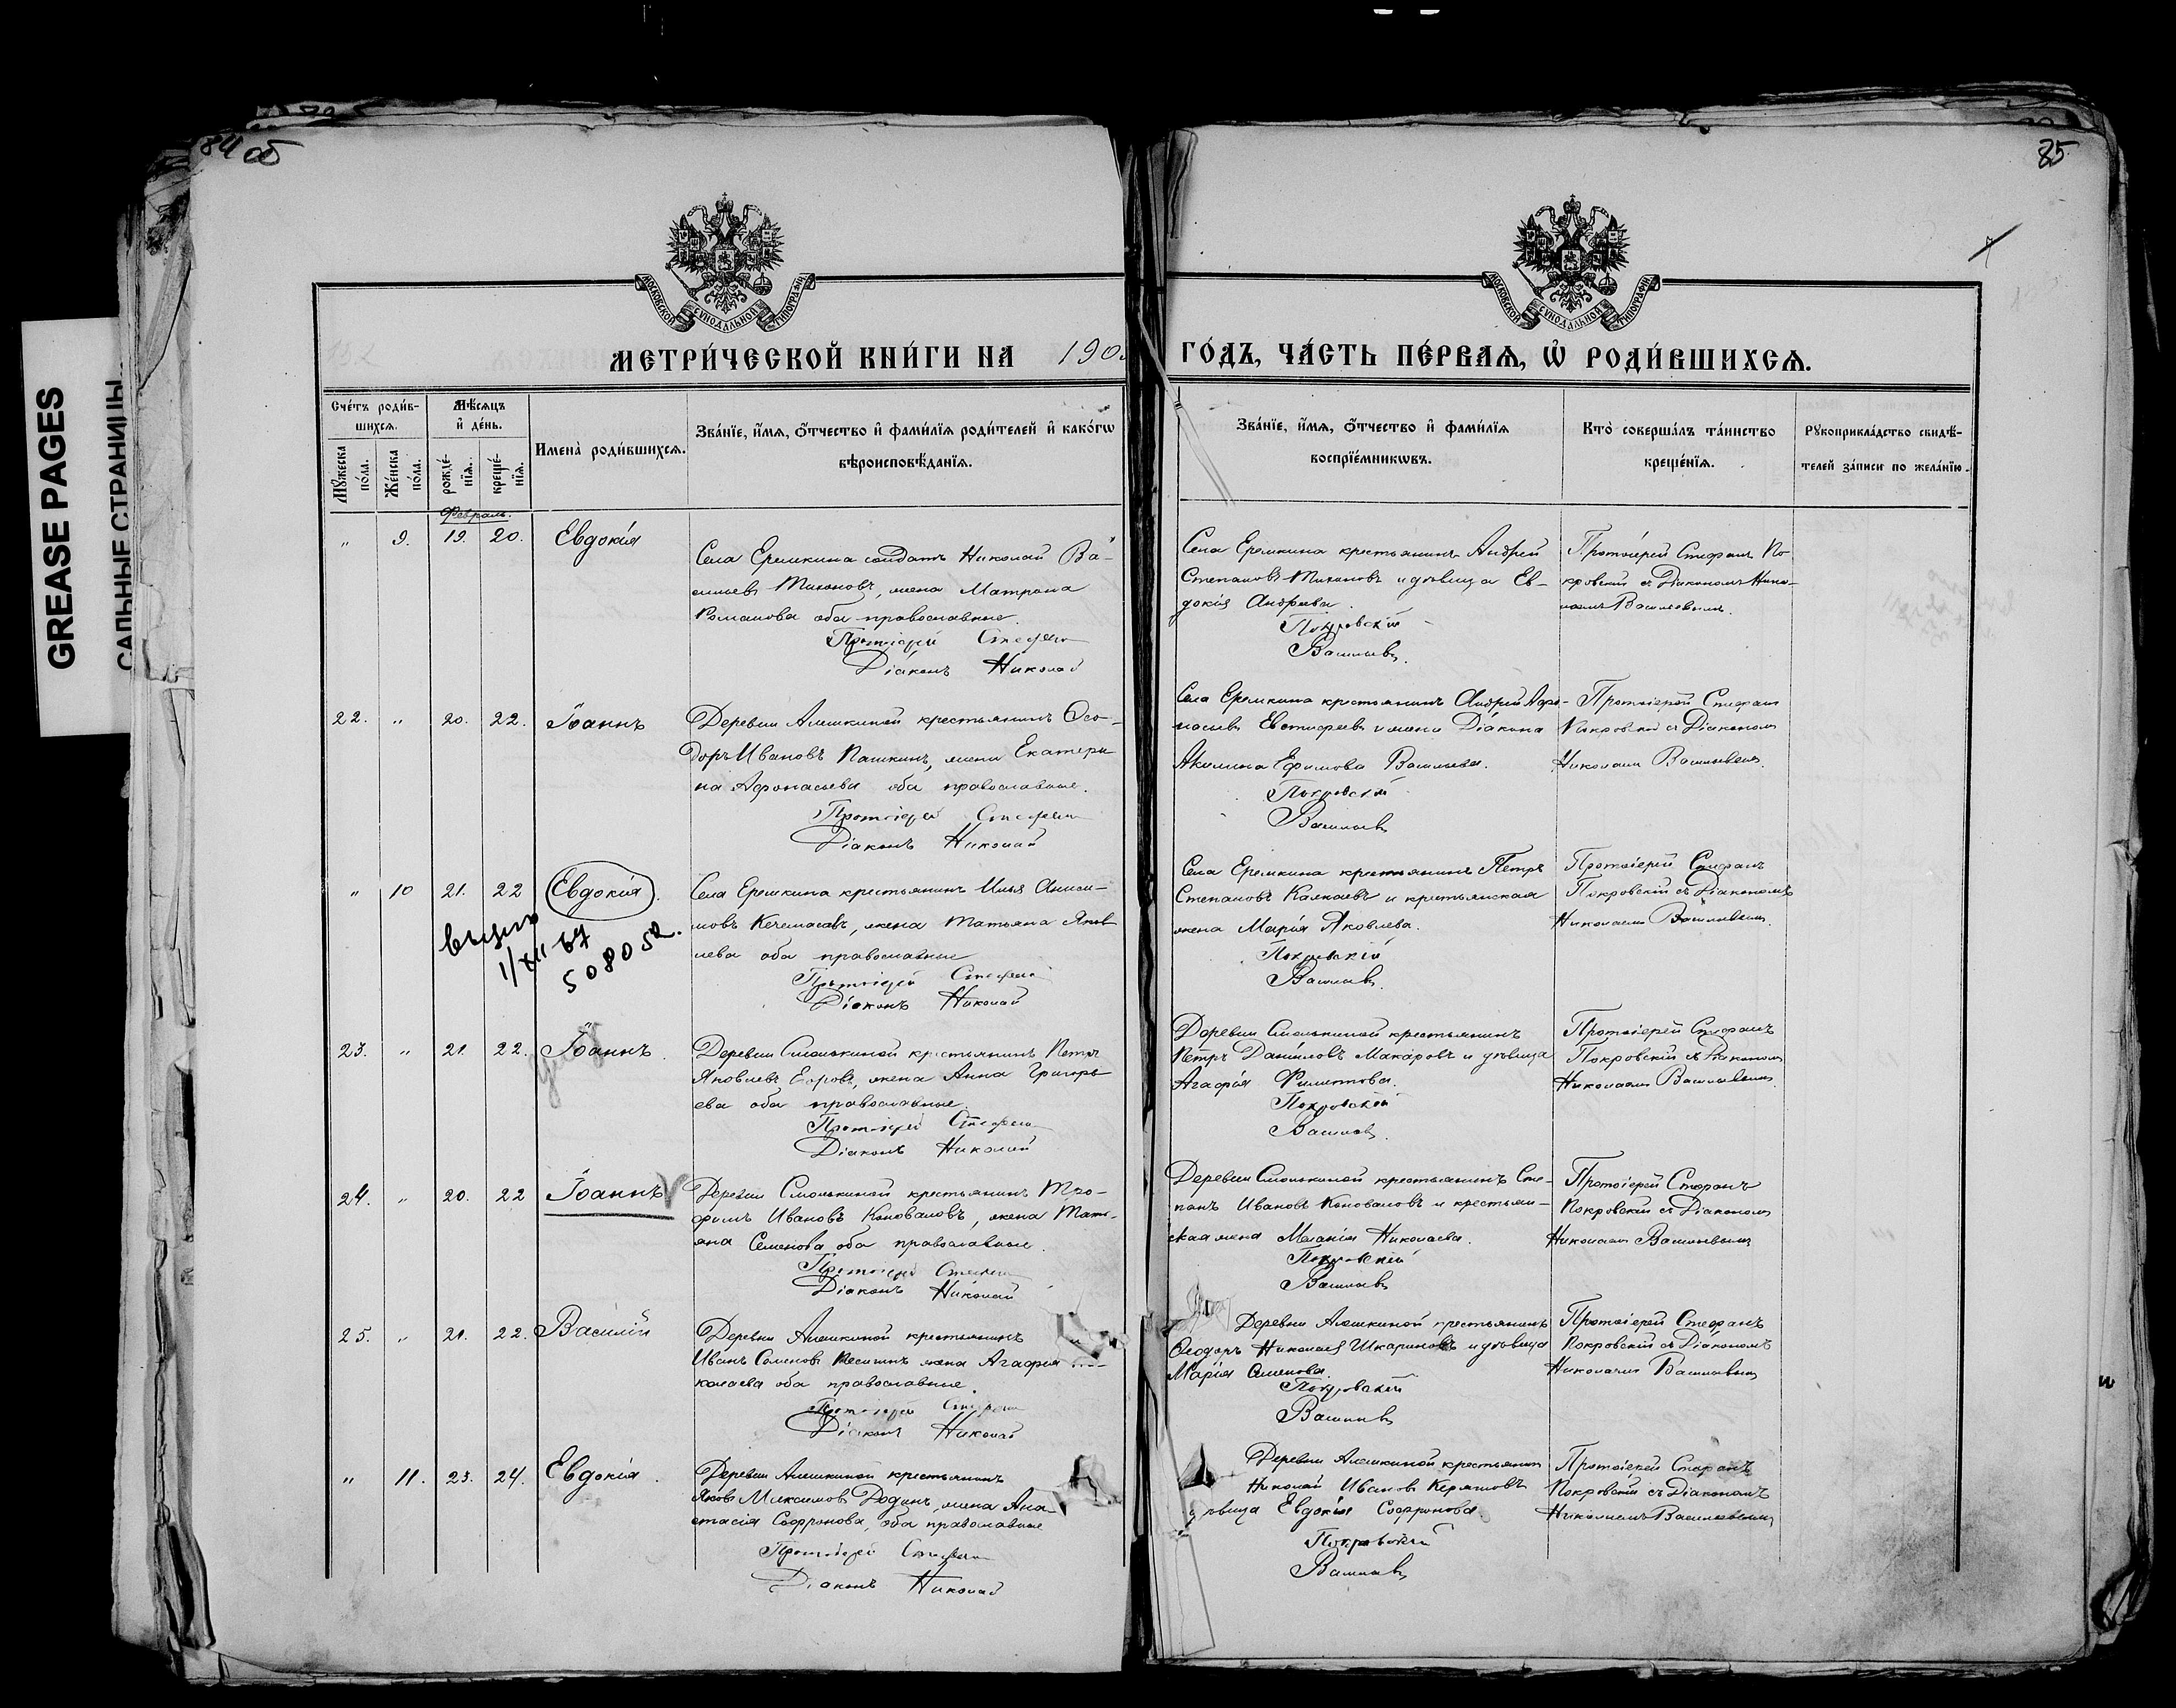 84 об
85
GREASE PAGES
САЛЬНЫЕ СТРАНИЦЫ
МОСКОВСКОЙ СѴНОДАЛЬНОЙ ТИПОГРАФІИ
МОСКОВСКОЙ СѴНОДАЛЬНОЙ ТИПОГРАФІИ
МЕТРИ́ЧЕСКОЙ КНИ́ГИ НА 190
ГО́ДЪ, ЧА́СТЬ ПЕ́РВАѦ, Ѡ РОДИ́ВШИХСѦ.
Сче́тъ роди́в-
шихсѧ.
Мꙋ́жеска по́ла.
Же́нска по́ла.
Мѣ́сѧцъ
и҆ де́нь.
рожде́-
нїѧ.
креще́-
нїѧ.
Имена̀ роди́вшихсѧ.
Зва́нїе, и҆́мѧ, ѻ҆́тчество и҆ фами́лїѧ роди́телей и҆ како́гѡ
вѣроисповѣ́данїѧ.
Зва́нїе, и҆́мѧ, ѻ҆́тчество и҆ фами́лїѧ
воспрїе́мникѡвъ.
Кто̀ соверша́лъ та́инство
креще́нїѧ.
Рꙋкоприкла́дство свидѣ́-
телей за́писи по жела́нїю.
Февраль.
" 9. 19. 20. Евдокія
Села Еремкина солдатъ Николай Ва-
сильевъ Тихоновъ, жена Матрона
Романова оба православные.
Протоіерей Стефанъ
Діаконъ Николай
Села Еремкина крестьянинъ Андрей
Степановъ Тихоновъ и дѣвица Ев-
докія Андреева.
Покровскій
Васильевъ.
Протоіерей Стефанъ По-
кровскій съ Діакономъ Нико-
лаемъ Васильевымъ.
22. " 20. 22. Іоаннъ
Деревни Алешкиной крестьянинъ Ѳео-
доръ Ивановъ Пашкинъ, жена Екатери-
на Афонасьева оба православные.
Протоіерей Стефанъ
Діаконъ Николай
Села Еремкина крестьянинъ Андрей Афо-
насьевъ Евстифеевъ и жена Діакона
Акилина Ефимова Васильева.
Покровскій
Васильевъ
Протоіерей Стефанъ
Покровскій съ Діакономъ
Николаемъ Васильевымъ.
" 10 21. 22 Евдокія.
1/XII 67
508052.
Села Еремкина крестьянинъ Илья Аниси-
мовъ Кечемасовъ, жена Татьяна Яков-
лева оба православные
Протоіерей Стефанъ
Діаконъ Николай
Села Еремкина крестьянинъ Петръ
Степановъ Калкаевъ и крестьянская
жена Марія Яковлева.
Покровскій
Васильевъ.
Протоіерей Стефанъ
Покровскій съ Діакономъ
Николаемъ Васильевымъ.
23. " 21. 22. Іоаннъ.
Деревни Смолькиной крестьянинъ Петръ
Яковлевъ Егоровъ, жена Анна Григорь-
ева оба православные.
Протоіерей Стефанъ
Діаконъ Николай
Деревни Смолькиной крестьянинъ
Петръ Даниловъ Макаровъ и дѣвица
Агафія Филиппова.
Покровскій
Васильевъ.
Протоіерей Стефанъ
Покровскій съ Діакономъ
Николаемъ Васильевымъ.
24. " 20. 22 Іоаннъ
Деревни Смолькиной крестьянинъ Тро-
фимъ Ивановъ Коноваловъ, жена Тать-
яна Семенова оба православные.
Протоіерей Стефанъ
Діаконъ Николай
Деревни Смолькиной крестьянинъ Сте-
панъ Ивановъ Коноваловъ и крестьян-
ская жена Меланія Николаева.
Покровскій
Васильевъ
Протоіерей Стефанъ
Покровскій съ Діакономъ
Николаемъ Васильевымъ
25. " 21. 22. Василій
Деревни Алешкиной крестьянинъ
Иванъ Семеновъ жена Агафія
колаева оба православные.
Протоіерей Стефанъ
Діаконъ Николай
Деревни Алешкиной крестьянинъ
Ѳеодоръ Николаевъ Шкариновъ и дѣвица
Марія Семенова.
Покровскій
Васильевъ
Протоіерей Стефанъ
Покровскій съ Діакономъ
Николаемъ Васильевымъ
" 11. 23. 24. Евдокія.
Деревни Алешкиной крестьянинъ
Яковъ Максимовъ Додинъ, жена Ана-
стасія Софронова, оба православные
Протоіерей Стефанъ
Діаконъ Николай
Деревни Алешкиной крестьянинъ
Николай Ивановъ Керяшовъ
дѣвица Евдокія Софронова.
Покровскій
Васильевъ
Протоіерей Стефанъ
Покровскій съ Діакономъ
Николаемъ Васильевымъ